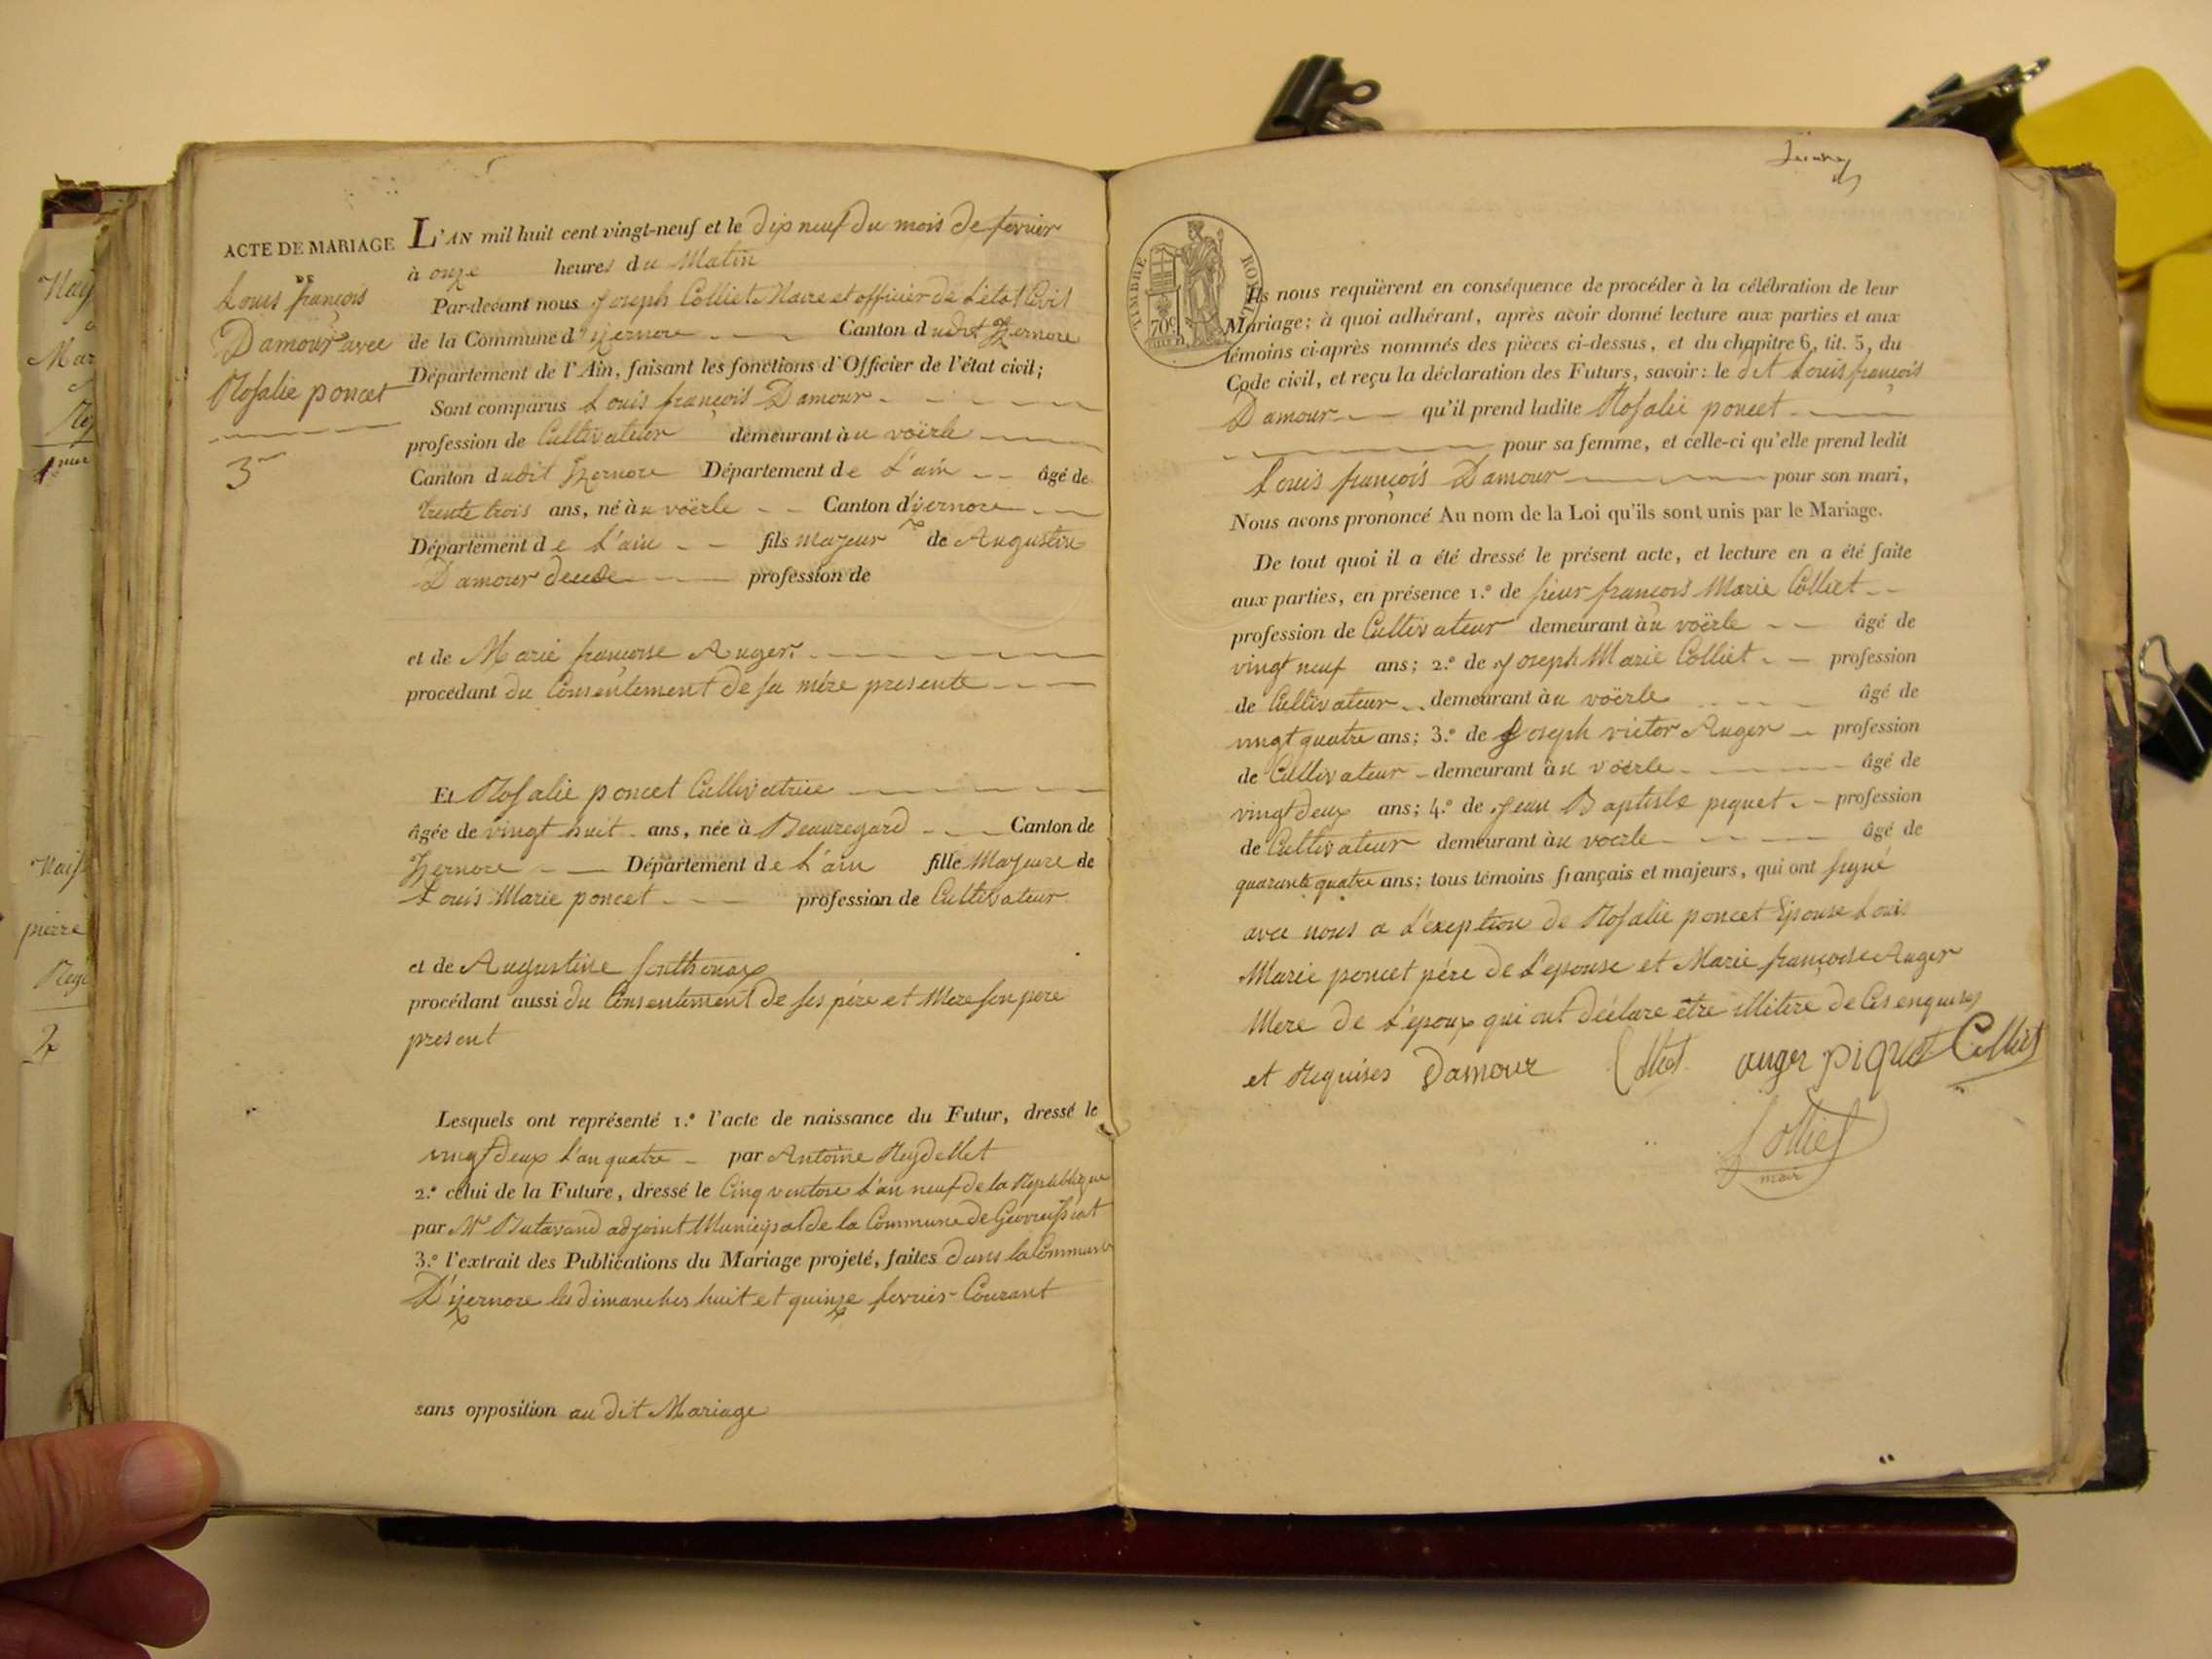 ACTE DE MARIAGE
DE
Louis françois
Damour avec
Rosalie poncet
3
L'AN mil huit cent vingt-neuf et le dix neuf du mois de fevrier
à onze heures du Matin
Par-devant nous Joseph Colliet Maire et officier de L'état Civil
de la Commune d'izernore Canton dudit Izernore
Département de l'Ain, faisant les fonctions d'Officier de l'état civil;
Sont comparus Louis françois Damour
profession de Cultivateur demeurant à u voërle
Canton dudit Izernore Département de L'ain âgé de
trente trois ans, né à u voërle Canton d'izernore
Département de L'ain fils majeur de Augustin
Damour profession de
et de Marie françoise Auger
procédant du Consentement de sa mére presente
Et Rosalie poncet Cultivatrice
âgée de vingt huit ans, née à Beauregard Canton de
Izernore Département de L'ain fille Majeure de
Louis Marie poncet profession de Cultivateur
et de Augustine
procédant aussi du Consentement de ses pére et Mere son pere
present
Lesquels ont représenté 1.° l'acte de naissance du Futur, dressé le
vingt deux L'an quatre par Antoine Reydellet
2.° celui de la Future, dressé le Cinq ventose L'an neuf de la Republique
par Mr Butavand adjoint Municipal de la Commune de Geovreissiat
3.° l'extrait des Publications du Mariage projeté, faites dans la Commune
D'izernore les dimanches huit et quinze fevrier Courant
sans opposition au dit Mariage
TIMBRE ROYAL
70c
Ils nous requièrent en conséquence de procéder à la célébration de leur
Mariage; à quoi adhérant, après avoir donné lecture aux parties et aux
témoins ci-après nommés des pièces ci-dessus, et du chapitre 6, tit. 5, du
Code civil, et reçu la déclaration des Futurs, savoir: le dit Louis françois
Damour qu'il prend ladite Rosalie poncet
pour sa femme, et celle-ci qu'elle prend ledit
Louis françois Damour pour son mari,
Nous avons prononcé Au nom de la Loi qu'ils sont unis par le Mariage.
De tout quoi il a été dressé le présent acte, et lecture en a été faite
aux parties, en présence 1.° de sieur françois Marie Colliet
profession de Cultivateur demeurant à u voërle âgé de
vingt neuf ans; 2.° de Joseph Marie Colliet profession
de Cultivateur demeurant à u voërle âgé de
vingt quatre ans; 3.° de Joseph victor Auger profession
de Cultivateur demeurant à u voërle âgé de
vingt deux ans; 4.° de Jean Baptiste piquet profession
de Cultivateur demeurant à u voerle âgé de
quarante quatre ans; tous témoins français et majeurs, qui ont signé
avec nous a L'exeption de Rosalie poncet Epouse Louis
Marie poncet pére de L'epouse et Marie françoise Auger
Mere de L'époux qui ont déclare être illitere de Ces enquises
et Requises Damour Colliet auger piquet Colliet
Colliet
mair